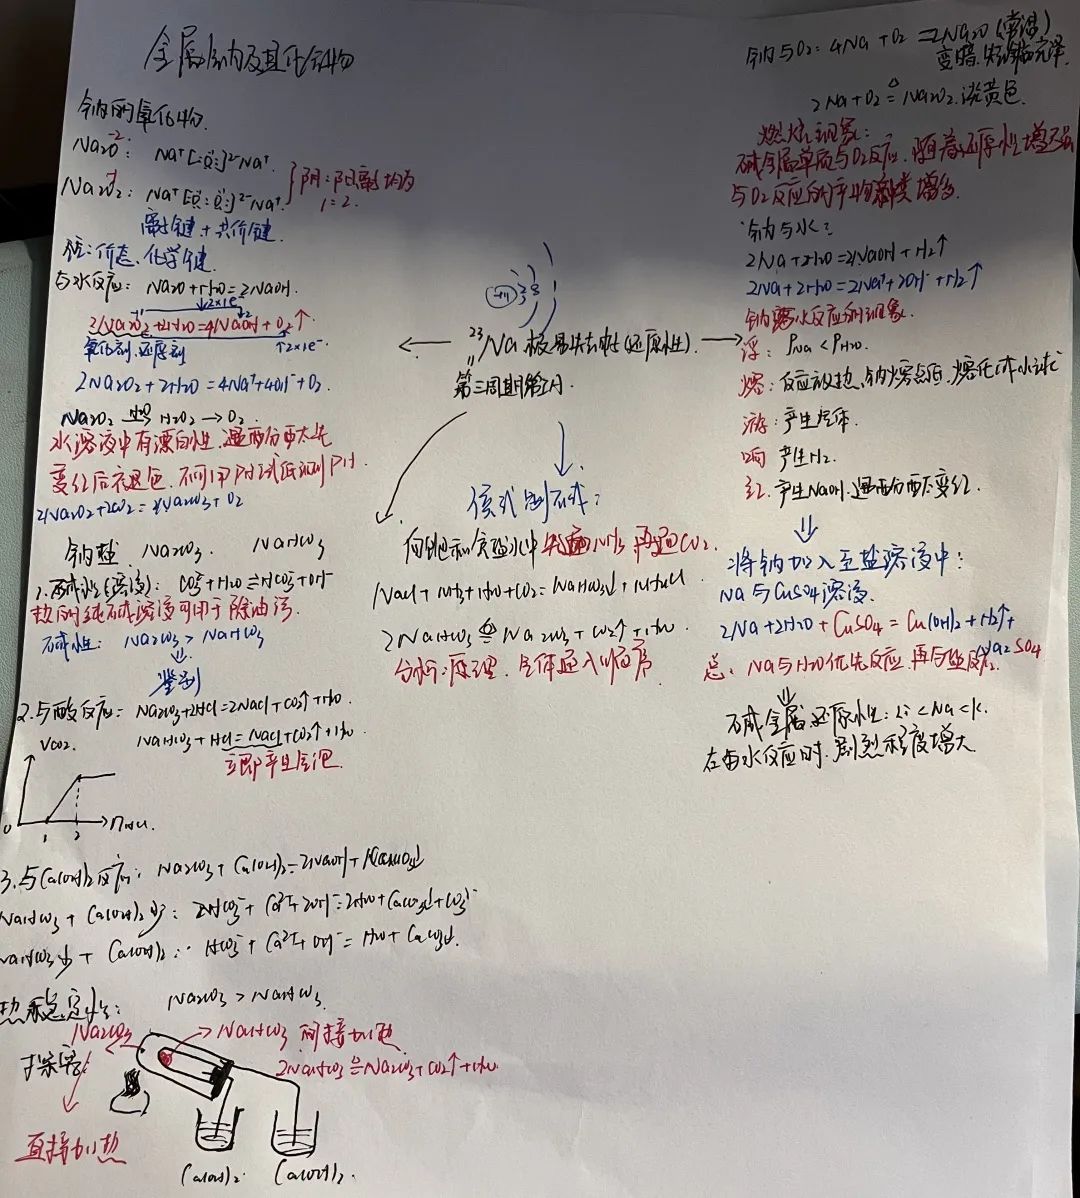 金属钠及其化合物
钠的氧化物.
-2
Na2O: Na⁺[:Ö:]²⁻Na⁺.
-1
Na2O2: Na⁺[:Ö:Ö:]²⁻Na⁺. } 阴:阳离子均为
1:2.
离子键+共价键.
价态、化学键.
与水反应: Na2O+H2O=2NaOH.
↓2×1e⁻
2Na2O2+2H2O=4NaOH+O2↑
氧化剂.还原剂 ↑2×1e⁻
2Na2O2+2H2O=4Na⁺+4OH⁻+O2.
Na2O2 → H2O2 → O2.
水溶液中有漂白性.遇酚酞先
变红后衣退色.不可用PH试纸测PH.
2Na2O2+2CO2=2Na2CO3+O2
钠盐 Na2CO3. NaHCO3
1.碱性(溶液): CO3²⁻+H2O⇌HCO3⁻+OH⁻
热的纯碱溶液可用于除油污.
碱性: Na2CO3>NaHCO3
⇓
鉴别
2.与酸反应: Na2CO3+2HCl=2NaCl+CO2↑+H2O.
NaHCO3+HCl=NaCl+CO2↑+H2O.
立即产生气泡.
VCO2.
0 1 2 nHCl.
3.与Ca(OH)2反应: Na2CO3+Ca(OH)2=2NaOH+CaCO3↓
NaHCO3+Ca(OH)2少: 2HCO3⁻+Ca²⁺+2OH⁻=2H2O+CaCO3↓+CO3²⁻
NaHCO3少+Ca(OH)2: HCO3⁻+Ca²⁺+OH⁻=H2O+CaCO3↓.
热稳定性: Na2CO3>NaHCO3.
探究:
Na2CO3
直接加热
NaHCO3 间接加热
2NaHCO3 ≜ Na2CO3+CO2↑+H2O.
Ca(OH)2. Ca(OH)2.
+11
²³₁₁Na 极易失去电子(还原性).
第三周期第ⅠA.
侯式制碱:
向饱和食盐水中先通NH3 再通CO2.
NaCl+NH3+H2O+CO2=NaHCO3↓+NH4Cl
2NaHCO3 ≜ Na2CO3+CO2↑+H2O.
分析:原理.气体通入顺序
钠与O2: 4Na+O2=2Na2O(常温)
变暗.失金属光泽.
2Na+O2 ≜ Na2O2.淡黄色.
燃烧现象:
碱金属单质与O2反应.随着还原性增强
与O2反应的产物种类增多.
钠与水:
2Na+2H2O=2NaOH+H2↑
2Na+2H2O=2Na⁺+2OH⁻+H2↑
钠与水反应的现象.
浮: ρNa<ρH2O.
熔: 反应放热,钠熔点低.熔化成小球
游: 产生气体.
响 产生H2.
红. 产生NaOH.遇酚酞变红.
⇓
将钠加入至盐溶液中:
Na与CuSO4溶液.
2Na+2H2O+CuSO4=Cu(OH)2+H2↑+
Na2SO4
总: Na与H2O优先反应.再与盐反应.
⇓
碱金属还原性: Li<Na<K.
在与水反应时.剧烈程度增大.